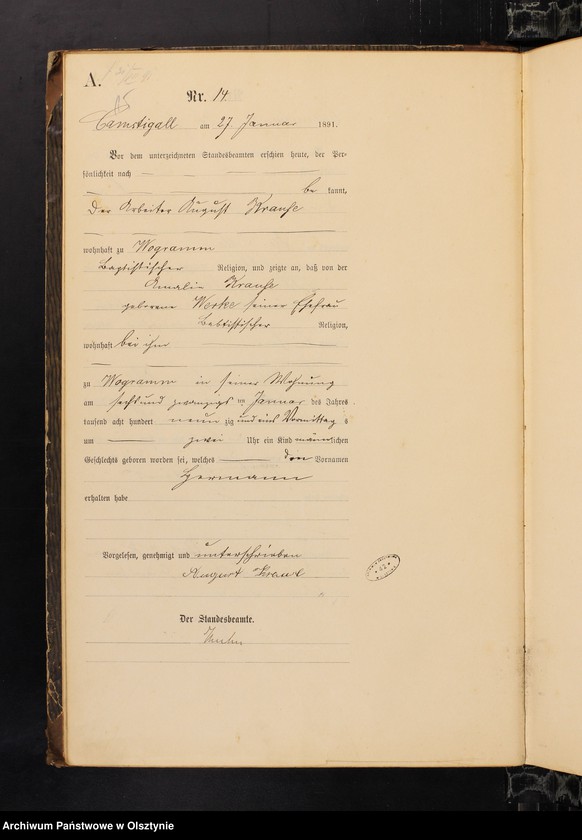 A.
Nr. 14.
Camstigall am 27. Januar 1891.
Vor dem unterzeichneten Standesbeamten erschien heute, der Per-
sönlichkeit nach
be kannt,
der Arbeiter August Krause
wohnhaft zu Wogramm
Baptistischer Religion, und zeigte an, daß von der
Amalie Krause
geborene Werke seiner Ehefrau
Babtistischer Religion,
wohnhaft bei ihm
zu Wogramm in seiner Wohnung
am sechsundzwanzigsten Januar des Jahres
tausend acht hundert neun zig und eins Vormittag s
um zwei Uhr ein Kind männlichen
Geschlechts geboren worden sei, welches den Vornamen
Hermann
erhalten habe
Vorgelesen, genehmigt und unterschrieben
August
Der Standesbeamte.
Archiwum Państwowe w Olsztynie